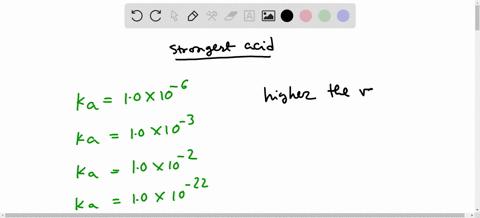 strongest acid
ka = 1.0 × 10⁻⁶
higher the v
ka = 1.0 × 10⁻³
ka = 1.0 × 10⁻²
ka = 1.0 × 10⁻²²